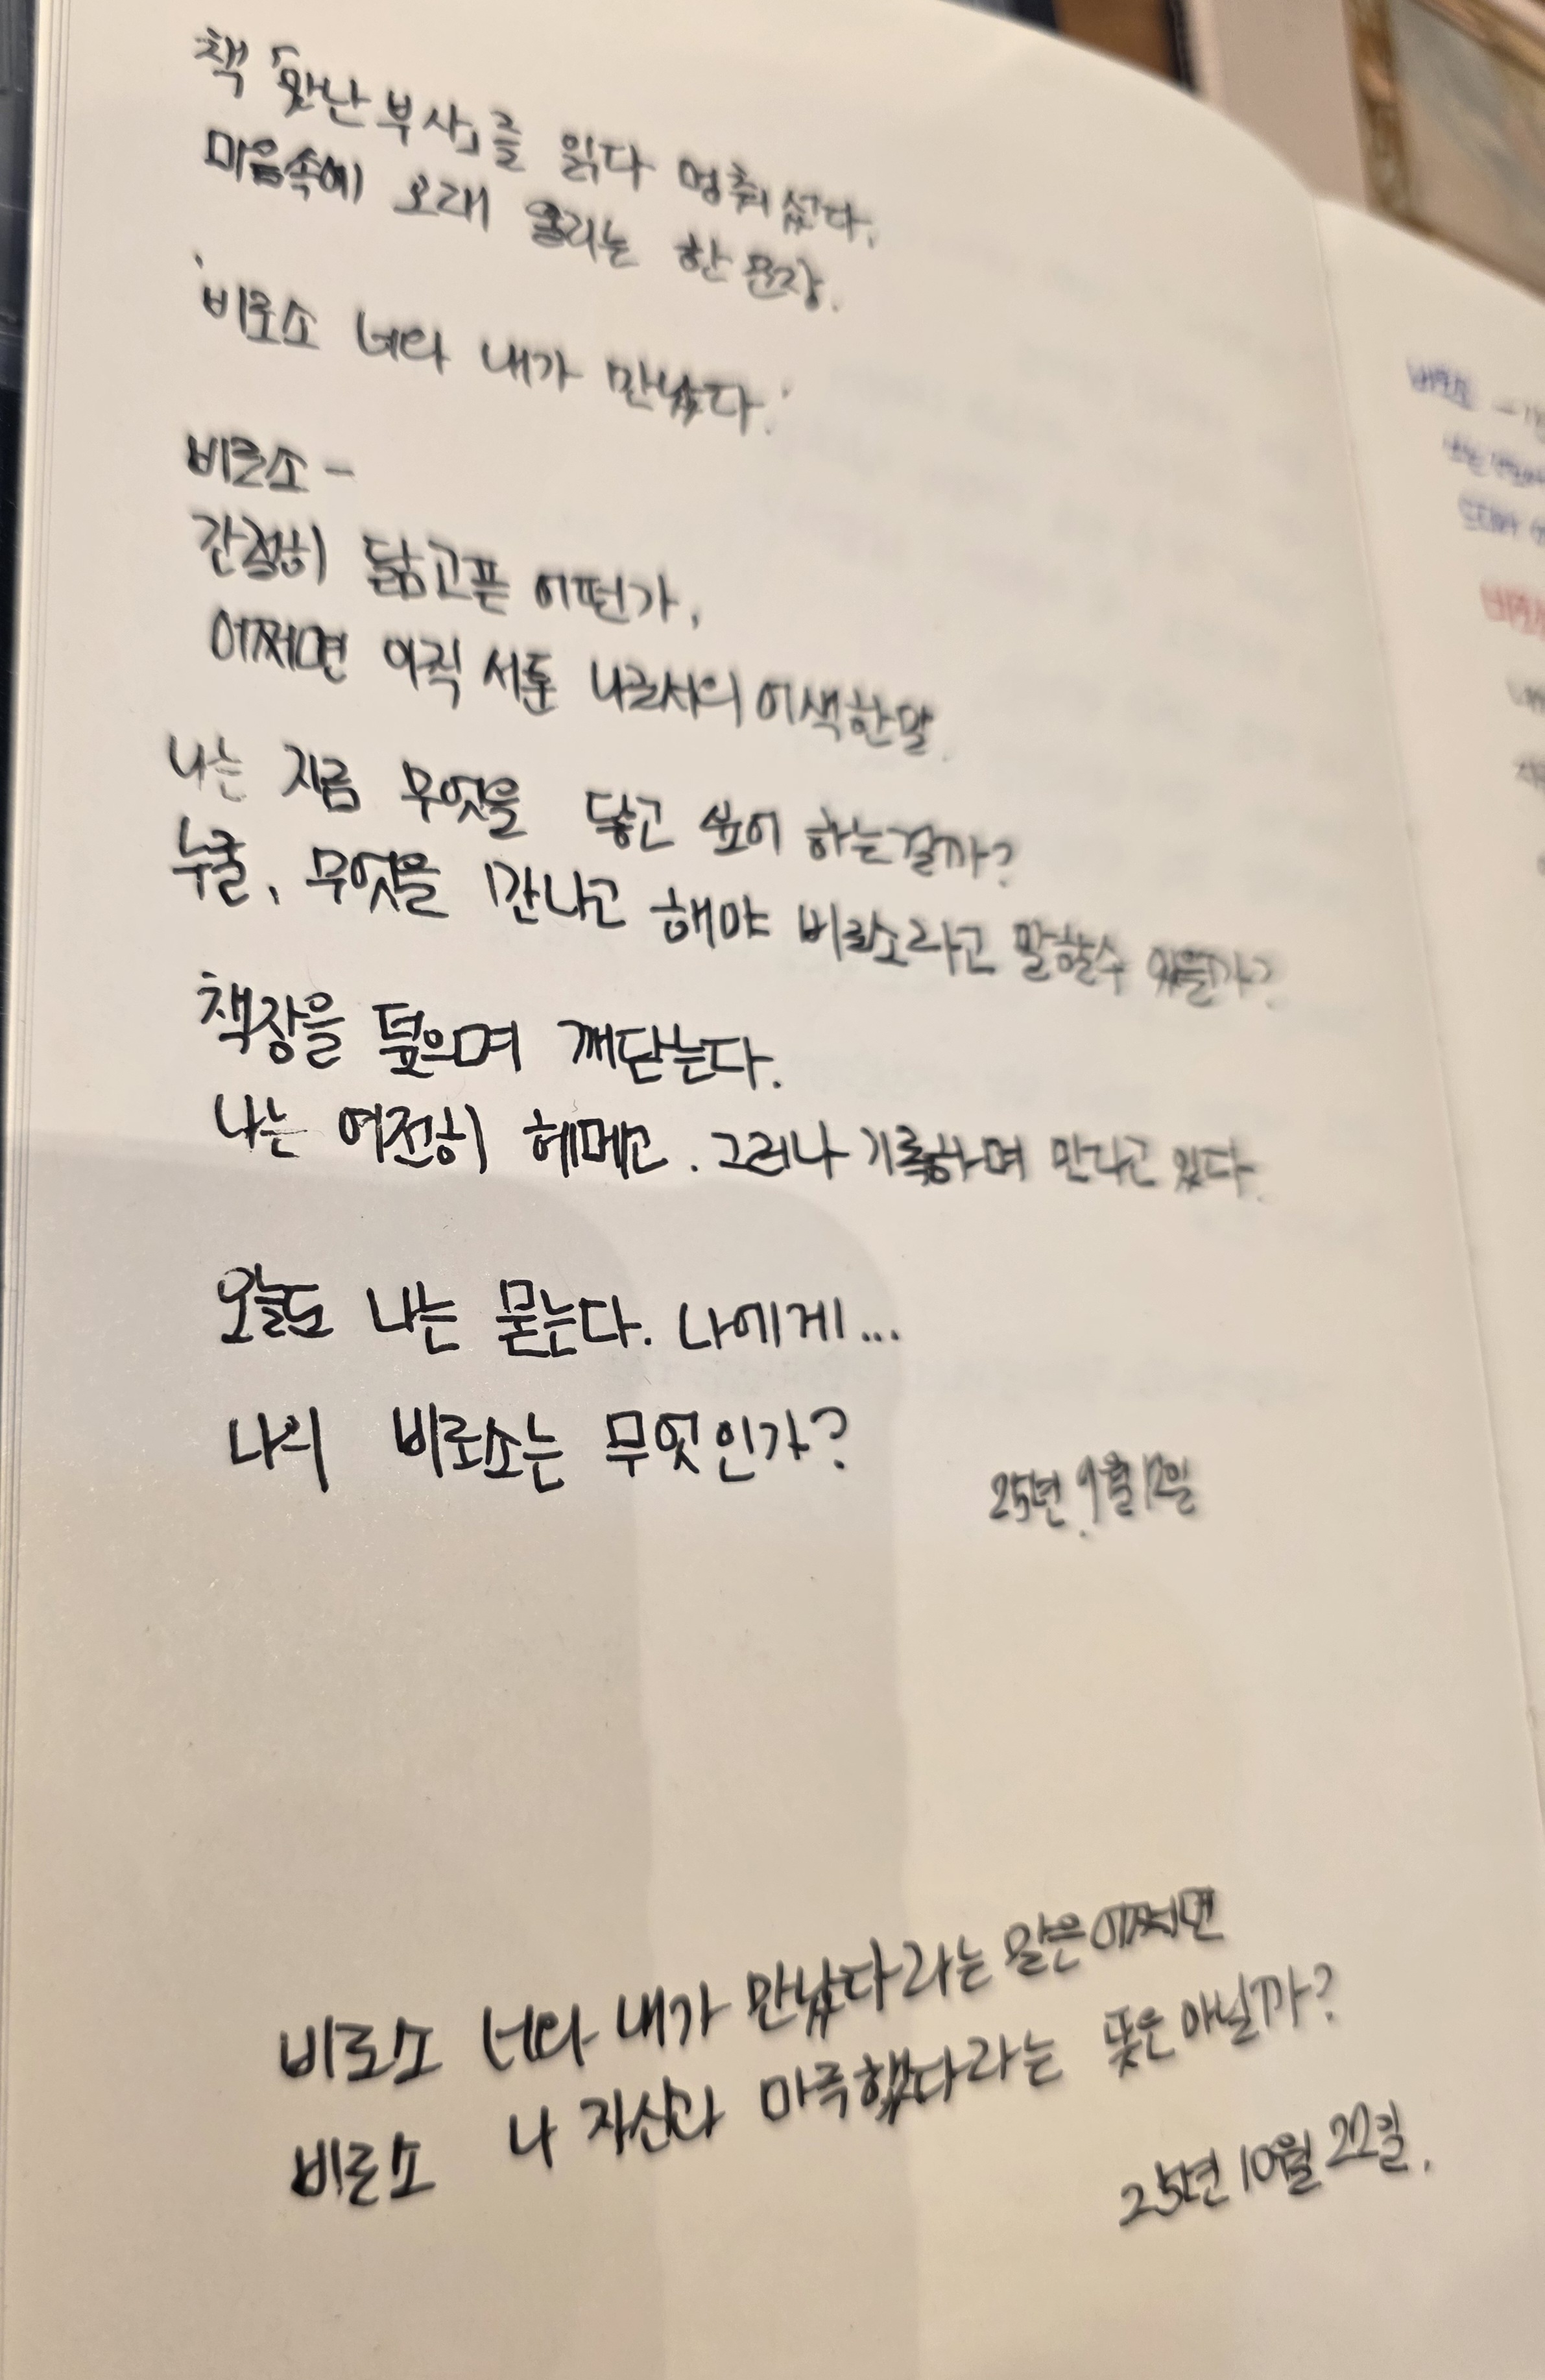 책 「만난 부사」를 읽다 멈춰 섰다.
마음속에 오래 울리는 한 문장.
'비로소 너와 내가 만났다.'
비로소 -
간절히 닮고픈 어떤가,
어쩌면 아직 서툰 나로서의 어색한 말
나는 지금 무엇을 닿고 싶어 하는걸까?
누굴, 무엇을 만나고 해야 비로소라고 말할수 있을까?
책장을 덮으며 깨닫는다.
나는 여전히 헤메고. 그러나 기록하며 만나고 있다.
오늘도 나는 묻는다. 나에게...
나의 비로소는 무엇인가?
25년 9월 12일
비로소 너와 내가 만났다라는 말은 어쩌면
비로소 나 자신과 마주했다라는 뜻은 아닐까?
25년 10월 22일.
비로소
비로소